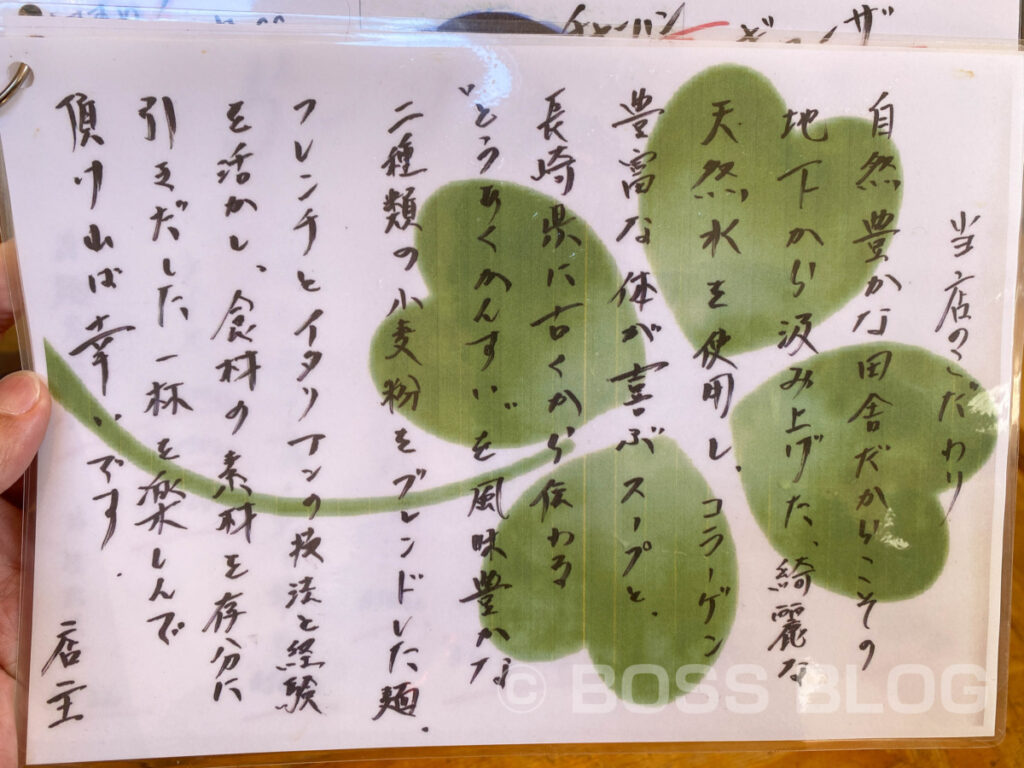 チャーハン
ギョーザ
当店のこだわり
自然豊かな田舎だからこその
地下から汲み上げた、綺麗な
天然水を使用し、コラーゲン
豊富な体が喜ぶスープと、
長崎県に古くから伝わる
"とうあくかんすい"を風味豊かな
二種類の小麦粉をブレンドした麺、
フレンチとイタリアンの技法と経験
を活かし、食材の素材を存分に
引きだした一杯を楽しんで
頂ければ幸いです。
店主
© BOSS BLOG